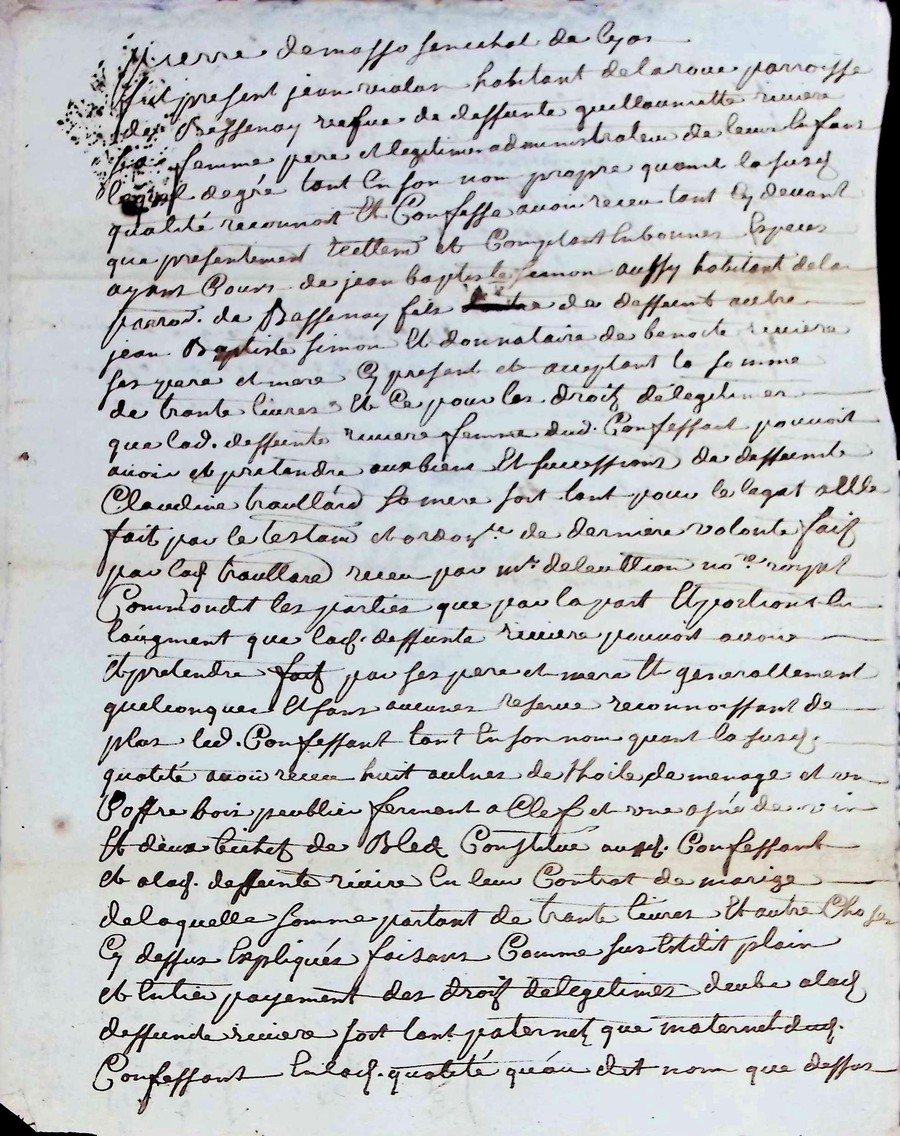 Pierre demasso senechal de Lyon
fut present jean rialan habitant delaroue parroisse
de Bessenay viefue de deffuinte guillaumette riviere
sa femme pere et legitime administrateur de leurs enfans
lequel degré tant En son nom propre quant la susd
qualité reconnoit Et Confesse avoir receu tant Cy devant
que presentement reellemt et Comptant En bonnes Especes
ayant Cours de jean baptiste simon aussy habitant dela
parrod. de Bessenay fils de deffunt autre
jean Baptiste Simon Et donnataire de benoite riviere
ses pere et mere Cy present et acceptant la somme
de trante livres Et Ce pour les droitz délegitimes
que lad. deffuinte riviere femme dud. Confessant pouvoit
avoir et pretendre aux biens Et successions de deffuinte
Claudine traullard sa mere soit tant pour le legat a Elle
fait par le testamt et ordonce de derniere volonte faitz
par lad traullard receu par mre no.re royal
Comm'ondit les parties que par la part Et portions En
l'augment que lad. deffuinte riviere pouvoit avoir
et pretendre fait par ses pere et mere Et generallement
quelconques Et sans aucunes reserve reconnoissant de
plus led. Confessant tant En son nom quant la susd.
qualité avoir receu huit aulnes de thoile de menage et un
Coffre bois peublier fermant a Clef et une asné de vin
Et deux bichetz de Bled Constitué aud. Confessant
et alad. deffuinte riviere En leur Contrat de marige
de laquelle somme partant de trante livres Et autre Chosen
Cy dessus Expliqués faisant Comme sus Est dit plain
et Entier payement des droitz delegitimes deube alad
deffuinte riviere soit tant paternel que maternel dud.
Confessant En lad. qualité qu'au dit nom que dessus